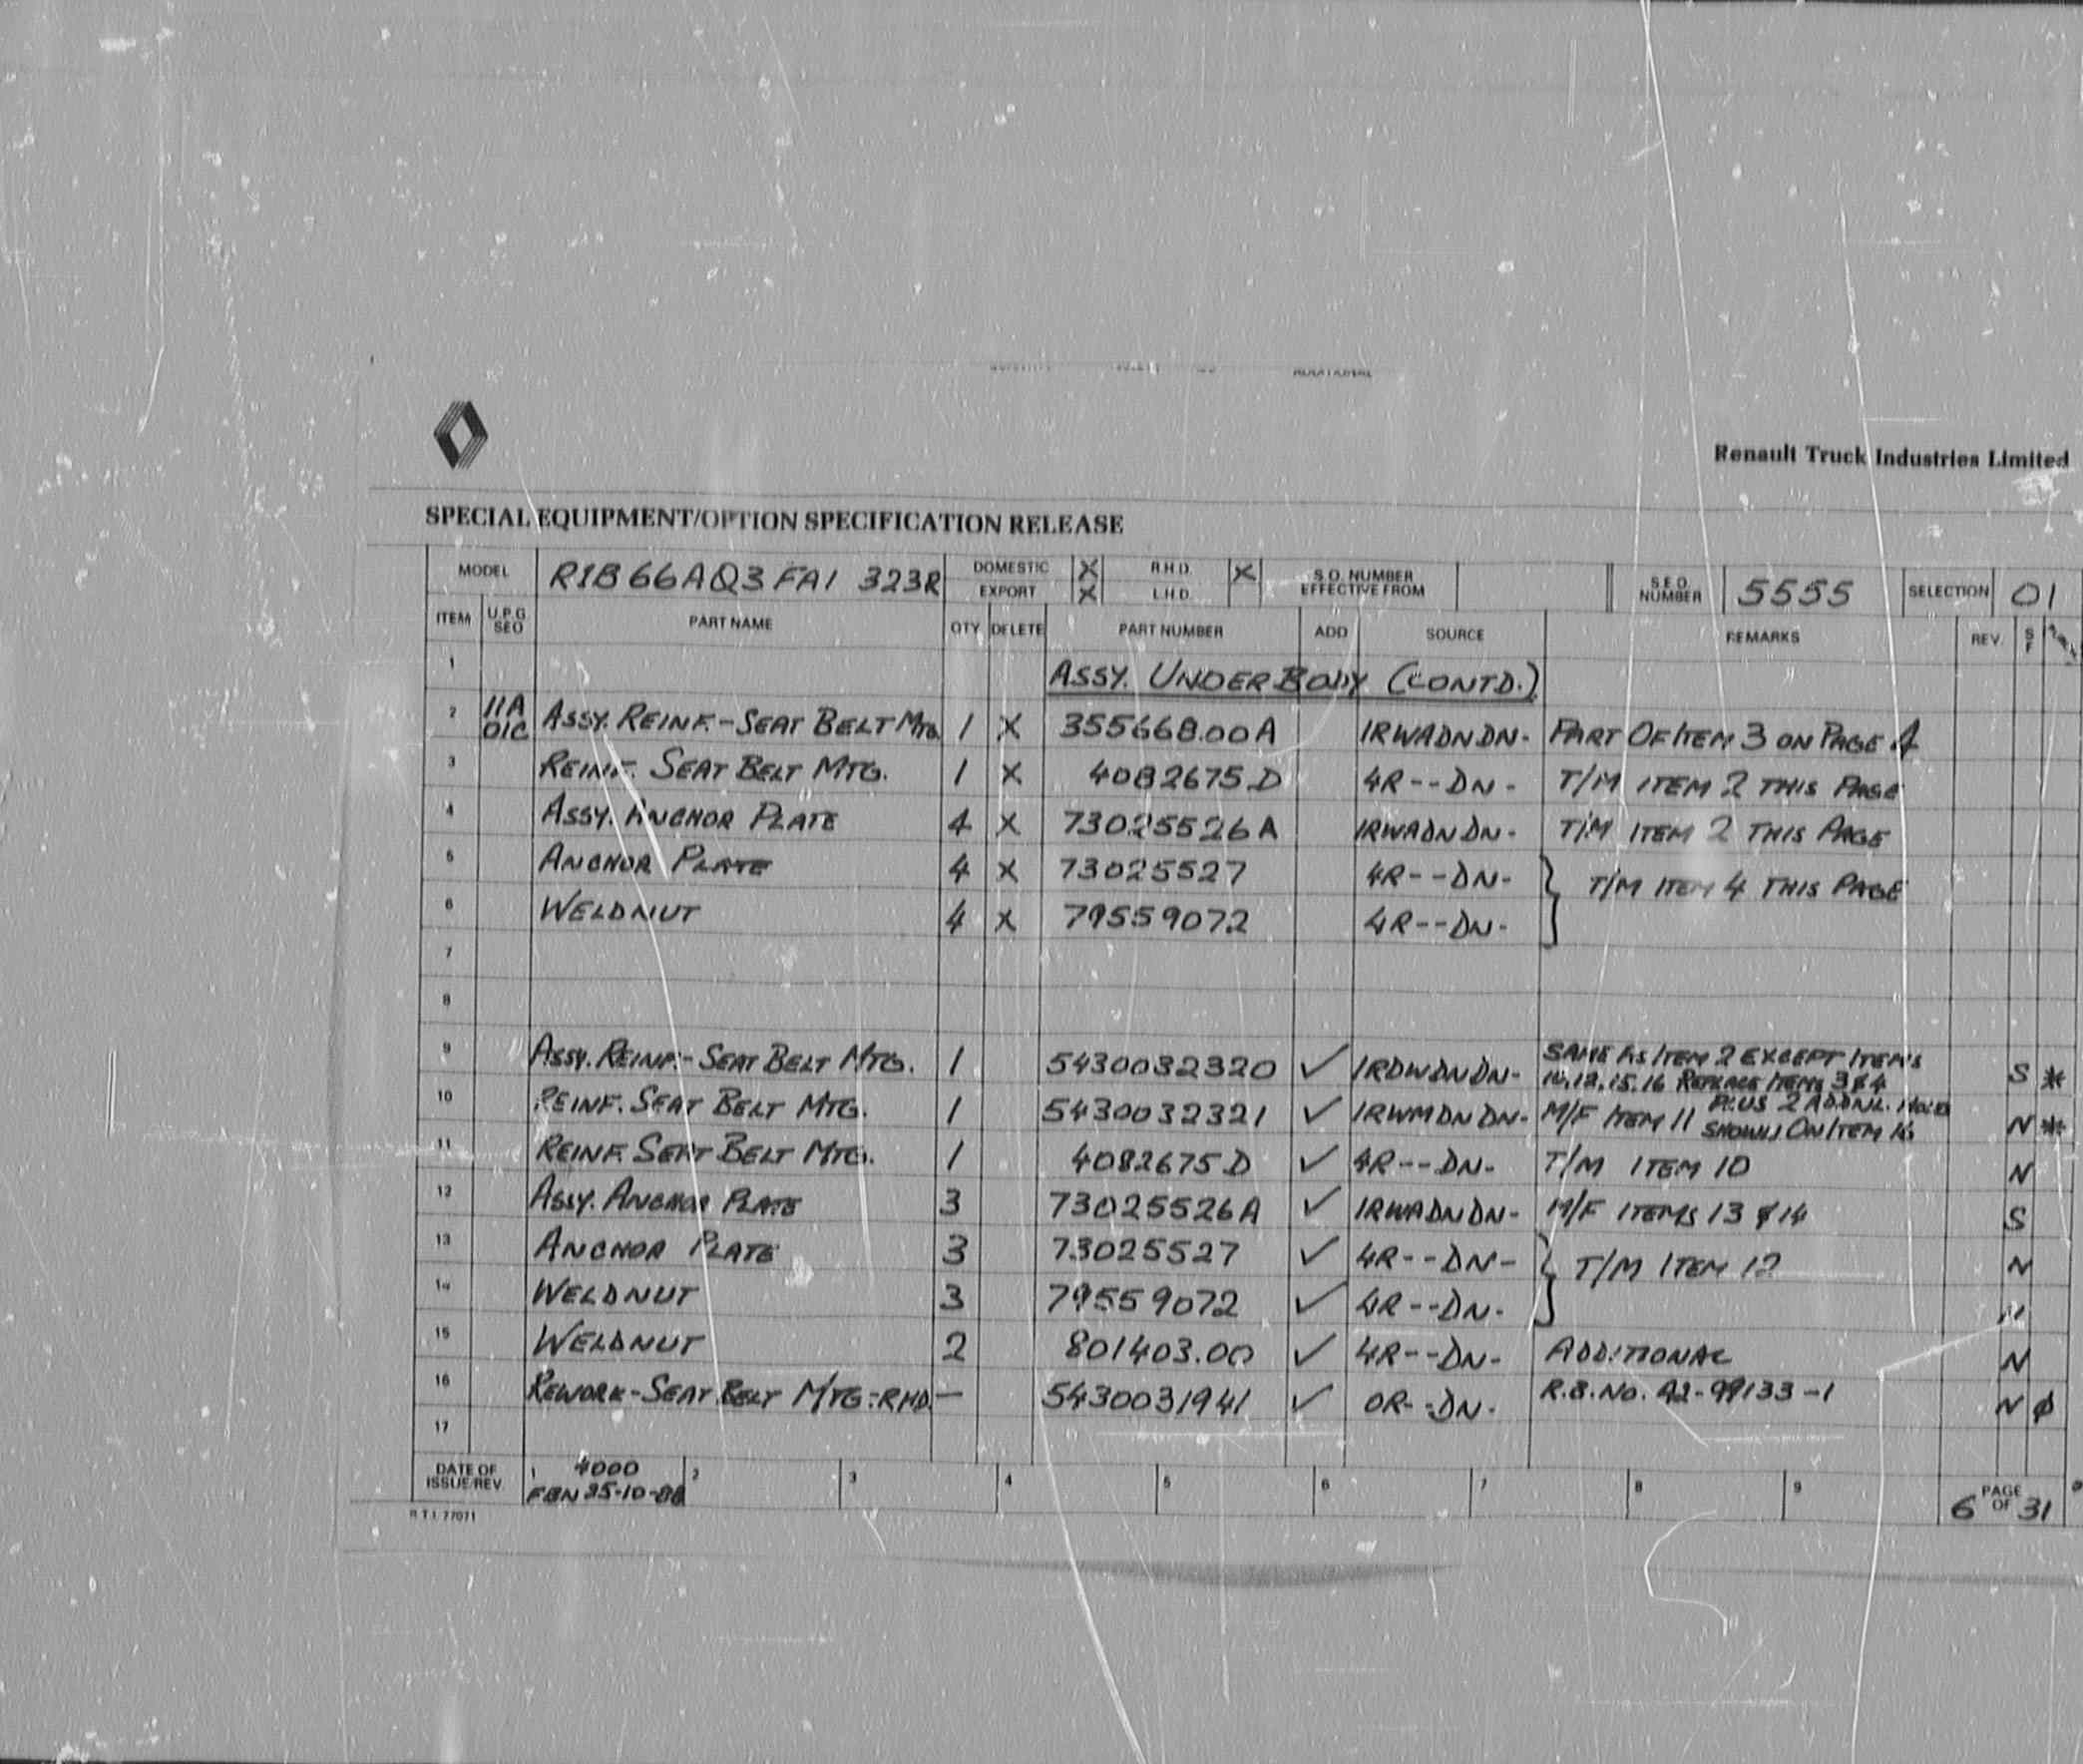 ADDITIONAL
Renault Truck Industries Limited
SPECIAL EQUIPMENT/OPTION SPECIFICATION RELEASE
MODEL R1B66AQ3FA1 323R DOMESTIC X R.H.D. X S.O. NUMBER EFFECTIVE FROM S.E.O. NUMBER 5555 SELECTION 01
EXPORT X L.H.D.
ITEM U.P.G SEO PART NAME QTY DELETE PART NUMBER ADD SOURCE REMARKS REV. S F
1 ASSY. UNDERBODY (CONTD.)
2 11A 01C ASSY. REINF.-SEAT BELT MTG. 1 X 355668.00A 1RWADNDN- PART OF ITEM 3 ON PAGE 4
3 REINF. SEAT BELT MTG. 1 X 4082675D 4R--DN- T/M ITEM 2 THIS PAGE
4 ASSY. ANCHOR PLATE 4 X 73025526A 1RWADNDN- T/M ITEM 2 THIS PAGE
5 ANCHOR PLATE 4 X 73025527 4R--DN- } T/M ITEM 4 THIS PAGE
6 WELDNUT 4 X 79559072 4R--DN-
7
8
9 ASSY. REINF.-SEAT BELT MTG. 1 5430032320 ✓ 1RDWDNDN- SAME AS ITEM 2 EXCEPT ITEMS 10,12,15,16 REPLACE ITEMS 3 & 4 S *
10 REINF. SEAT BELT MTG. 1 5430032321 ✓ 1RWMDNDN- M/F ITEM 11 PLUS 2 ADDNL. HOLES SHOWN ON ITEM 16 N *
11 REINF. SEAT BELT MTG. 1 4082675D ✓ 4R--DN- T/M ITEM 10 N
12 ASSY. ANCHOR PLATE 3 73025526A ✓ 1RWADNDN- M/F ITEMS 13 & 14 S
13 ANCHOR PLATE 3 73025527 ✓ 4R--DN- } T/M ITEM 12 N
14 WELDNUT 3 79559072 ✓ 4R--DN- N
15 WELDNUT 2 801403.00 ✓ 4R--DN- ADDITIONAL N
16 REWORK-SEAT BELT MTG:-RHD. — 5430031941 ✓ 0R--DN- R.B.No. 92-99133-1 N ϕ
17
DATE OF ISSUE/REV. 1 4000 2 3 4 5 6 7 8 9 PAGE 6 OF 31
R.T.I. 77071